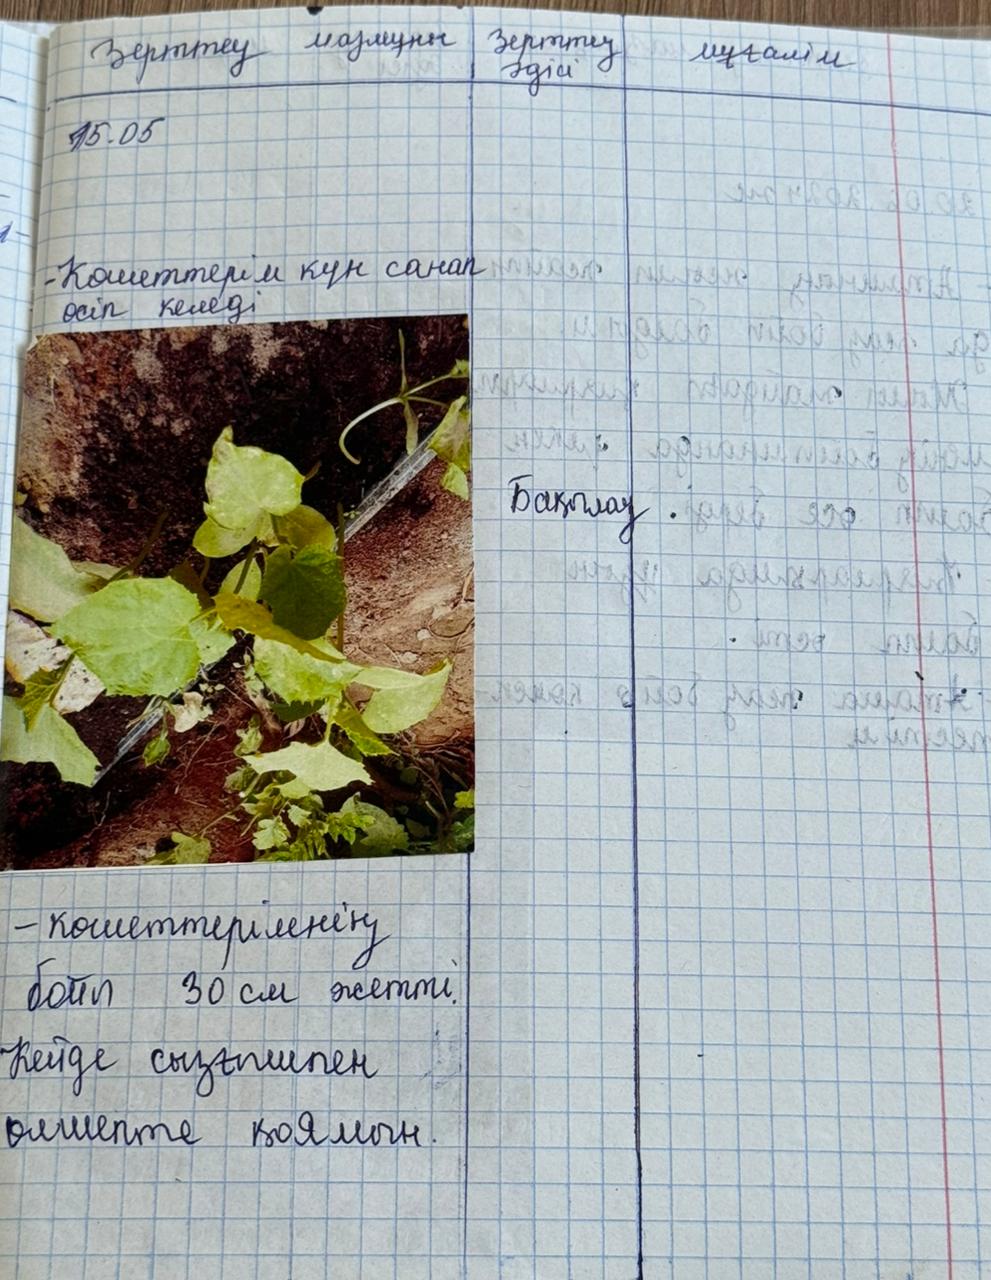 Зерттеу мазмұны
Зерттеу
әдісі
мұғалім
15.05
-Көшеттерім күн санап
өсіп келеді
Бақылау.
-көшеттерімнің
бойы 30 см жетті.
Кейде сызғышпен
өлшепте қоямын.